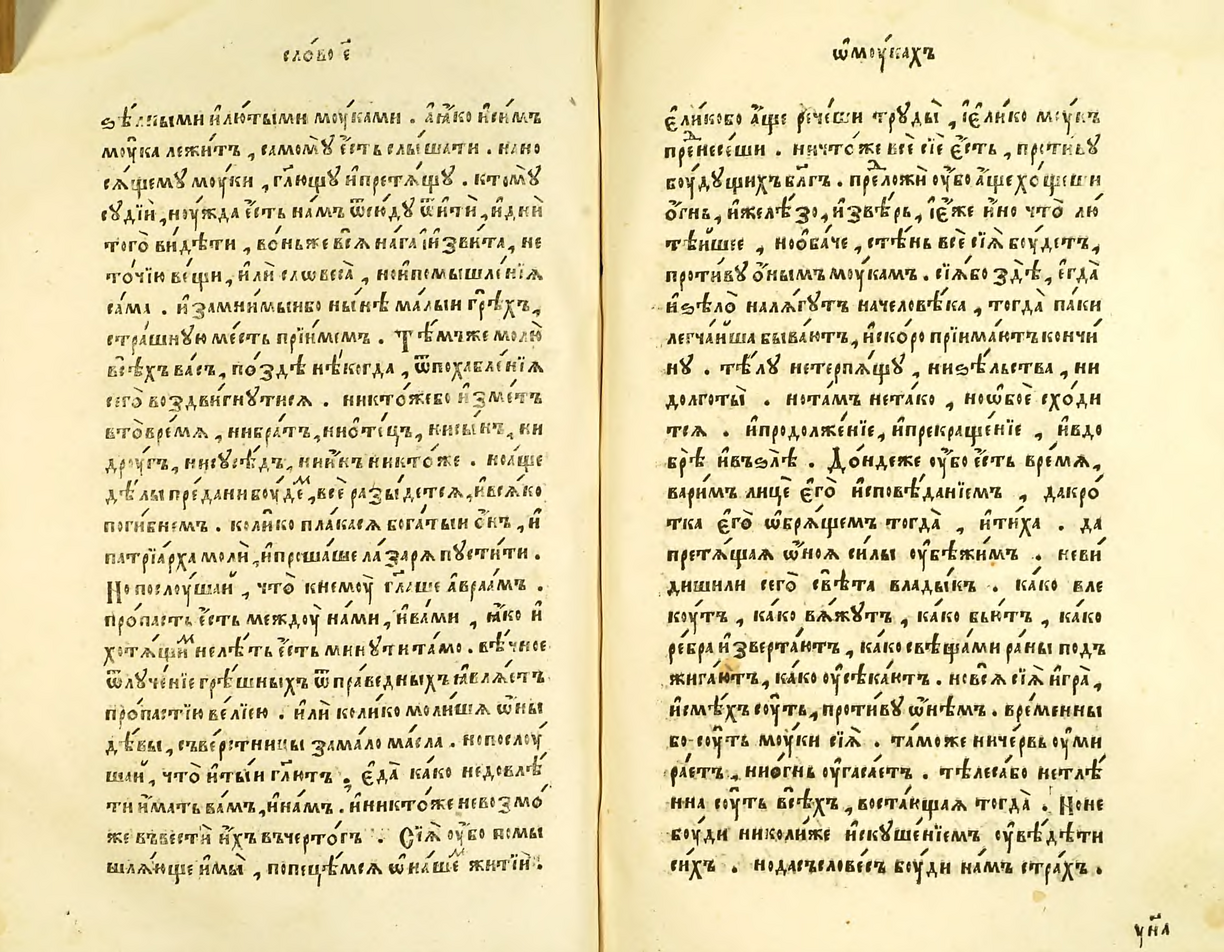 сло́во є҃
ѕѣ́лными и҆лю́тыми моу́ками . а҆ꙗ҆́ко и҆си́мъ
моу́ка лежи́тъ , самомꙋ̀ є҆́сть слы́шати . но но
сѧ́щемꙋ моу́ки , гл҃ющꙋ и҆претѧ́щꙋ . ктомꙋ̀
сꙋдїи̑ , ноу́жда є҆́сть на́мъ ѿсю́дꙋ ѿи҆ти̑ , и҆дни̑
того̀ ви́дѣти , во́ньже всѧ̑ нага̀ и҆зви́та , не
то́чїю ве́щи , и҆лѝ словеса̀ , нои҆помышле́нїѧ
сама̀ . и҆замни́мыибо нн҃ѣ ма́лыи грѣ́хъ ,
стра́шнꙋю ме́сть прїи́мемъ . Тѣ́мъже молю̀
всѣ́хъ ва́съ , по́здѣ нѣ́когда , ѿпохабле́нїѧ
сего̀ воздви́гнꙋтисѧ . никто́жебо и҆́зметъ
вто̀ вре́мѧ , нибра́тъ , ниѻ҆те́цъ , нисы́нъ , ни
дрꙋ́гъ , нисꙋсѣ́дъ , нии҆́нъ никто́же . но а҆́ще
дѣ́лы пре́дани бꙋ́деⷨ , всѐ разы́детсѧ , и҆всѧ́ко
поги́бнемъ . коли́ко пла́касѧ бога́тыи ѻ҆́нъ , и҆
патрїа́рха молѝ , и҆проша́ше ла́зарѧ пꙋсти́ти .
Но послоу́шаи , что̀ кнемоу̀ гл҃аше а҆враа́мъ .
про́пасть є҆́сть междоу̀ на́ми , и҆ва́ми , ꙗ҆́ко и҆
хотѧ́щиⷨ нелѣ́ть є҆́сть минꙋ́ти та́мо . вѣ́чное
ѿлꙋче́нїе грѣ́шныхъ ѿ пра́ведныхъ ꙗ҆влѧ́етъ
про́пастїю ве́лїею . и҆лѝ коли́ко моли́шѧ ѻ҆́ны
дѣ́вы , съве́рстницы за ма́ло ма́сла . но послоу́
шаи , что̀ и҆ты́и гл҃ютъ . є҆да̀ ка́ко недовлѣ́
ти и҆́мать ва́мъ , и҆на́мъ . и҆никто́же невозмо́
же въвестѝ и҆́хъ въчерто́гъ . Сїѧ̑ оу҆́бо помы
шлѧ́юще и҆мы̀ , попеце́мсѧ ѡ҆на́шеⷨ житїи̑ .
ѡ҆моу́кахъ
є҆ли́кобо а҆́ще рече́ши трꙋды̀ , і҆є҆ли́ко мꙋ́къ
пре́ⷣнесеши . ничто́же всѐ сїѐ є҆́сть , проти́вꙋ
боу́дꙋщихъ бл҃гъ . пре́ⷣложѝ оу҆́бо а҆́ще хо́щеши
ѻ҆́гнь , и҆желѣ́зо , и҆звѣ́рь , і҆є҆́же и҆́но что̀ лю
тѣ́ишее , но ѻ҆ба́че , стѣ́нь всѐ сїѧ̀ боу́детъ ,
проти́вꙋ ѻ҆́нымъ моу́камъ . сїѧ̑бо здѣ̀ , є҆гда̀
и҆ѕѣло̀ налѧ́гꙋтъ на человѣ́ка , тогда̀ па́ки
легча́йша быва́ютъ , и҆ско́ро прїима́ютъ кончи́
нꙋ . тѣ́лꙋ нетерпѧ́щꙋ , ниѕѣ́льства , ни
долготы̀ . но та́мъ нета́ко , но ѻ҆бо́е сходи́
тсѧ . и҆продолже́нїе , и҆прекраще́нїе , и҆вдо
брѣ̀ и҆въѕлѣ̀ . До́ндеже оу҆́бо є҆́сть вре́мѧ ,
вари́мъ лицѐ є҆гѡ̀ и҆сповѣ́данїемъ , да кро́
тка є҆гѡ̀ ѡ҆брѧ́щемъ тогда̀ , и҆ти́ха . да
претѧ́щаѧ ѻ҆́ноѧ си́лы оу҆бѣжи́мъ . неви́
дишили сегѡ̀ свѣ́та влады́къ . ка́ко вле
коу́тъ , ка́ко вѧ́жꙋтъ , ка́ко бїю́тъ , ка́ко
ре́бра и҆звертаю́тъ , ка́ко свѣща́ми ра́ны подъ
жига́ютъ , ка́ко оу҆сѣка́ютъ . но всѧ̑ сїѧ̀ и҆гра̀ ,
и҆смѣ́хъ соу́ть , проти́вꙋ ѻ҆нѣ́мъ . вре́менны
бо соу́ть моу́ки сїѧ̀ . та́може ниче́рвь оу҆ми
ра́етъ , ниѻ҆́гнь оу҆гаса́етъ . тѣлеса́бо нетлѣ́
нна соу́ть всѣ́хъ , востаю́щаѧ тогда̀ . Но не
боу́ди николи́же и҆скꙋше́нїемъ оу҆вѣ́дѣти
си́хъ . но да съсловѐсъ боу́ди на́мъ стра́хъ .